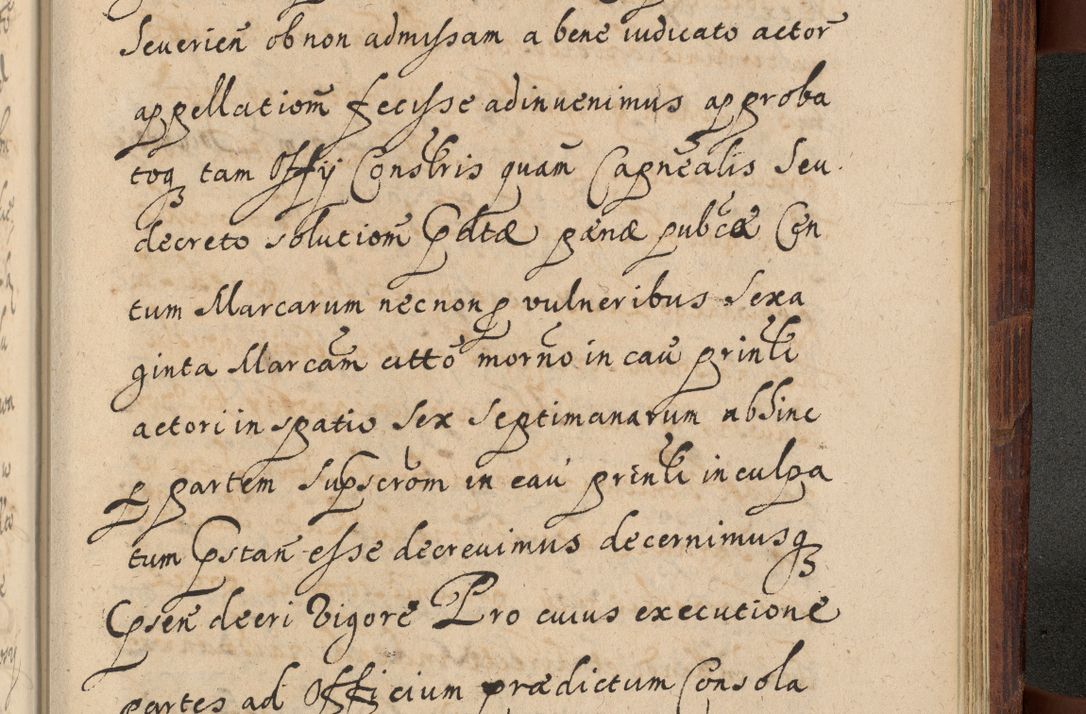 Seuerien̄ ob non admissam a bene iudicato actor̄
appellatiom̄ fecisse adinuenimus approba
toq₃ tam Offij Consl̄ris quam̄ Capn̄ealis Seu
decreto solutiom̄ Pdtæ pænæ pub̄cæ Cen
tum Marcarum necnon p vulneribus Sexa
ginta Marcam̄ citto morn̄o in cau prinl̄i
actori in spatio Sex Septimanarum absinc
p partem Supscrōm in cau prinl̄i inculpa
tum Pstan̄ esse decreuimus decernimusq₃
Psen̄ decri Vigore Pro cuius executione
partes ad Officium prædictum Consola